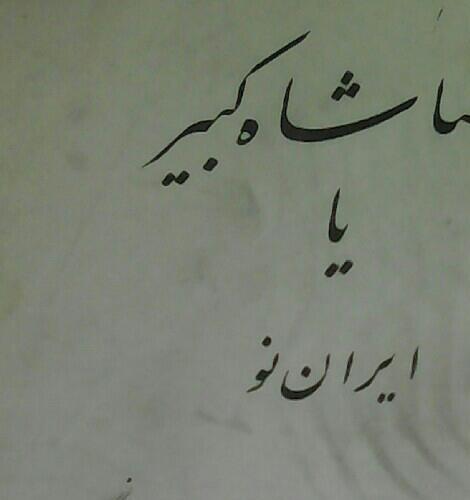 شاه کبیر
یا
ایران نو